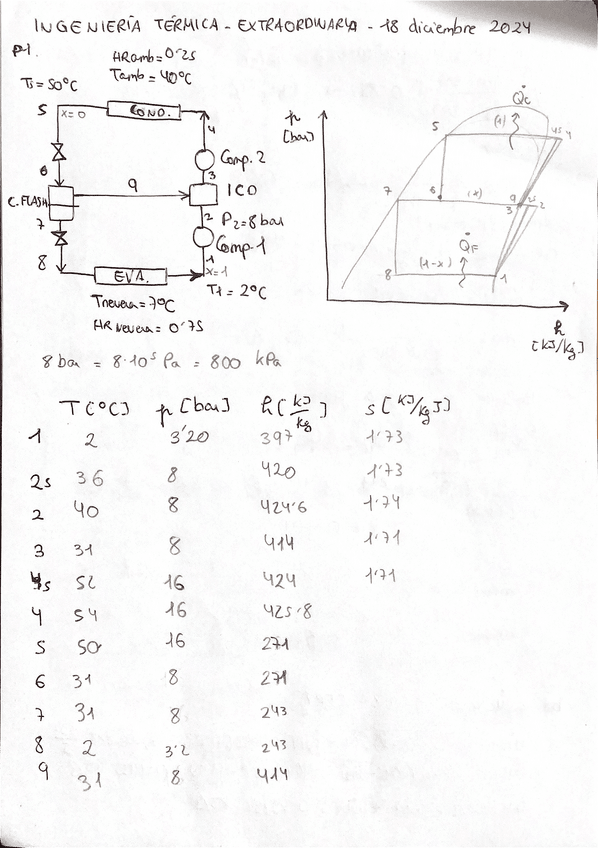 INGENIERÍA TÉRMICA - EXTRAORDINARIA - 18 diciembre 2024
P1.
HRamb = 0'25
Tamb = 40°C
T5 = 50°C
5
x=0
COND.
4
Comp. 2
3
6
9
ICO
C. FLASH
2
P2 = 8 bar
7
Comp-1
1
8
EVA.
x=1
T1 = 2°C
Tnevera = 7°C
HRnevera = 0'75
p
[bar]
Q̇c
5
(1)
4s
4
7
6
(x)
9
3
2s
2
Q̇F
8
(1-x)
1
h
[kJ/kg]
8 bar = 8·10⁵ Pa = 800 kPa
T [°C] p [bar] h [kJ/kg] s [kJ/kgJ]
1 2 3'20 397 1'73
2s 36 8 420 1'73
2 40 8 424'6 1'74
3 31 8 414 1'71
4s 52 16 424 1'71
4 54 16 425'8
5 50 16 271
6 31 8 271
7 31 8 243
8 2 3'2 243
9 31 8 414